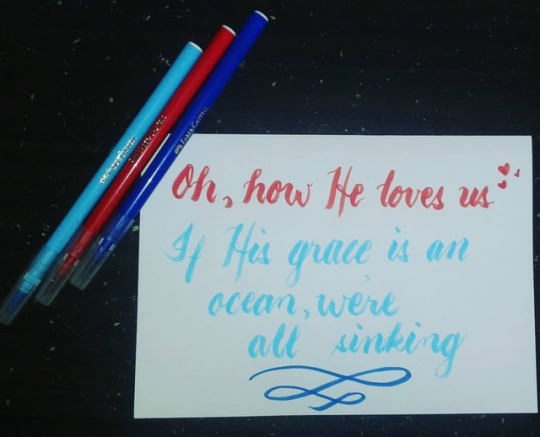 FABER-CASTELL
Oh, how He loves us
If His grace is an
ocean, we're
all sinking